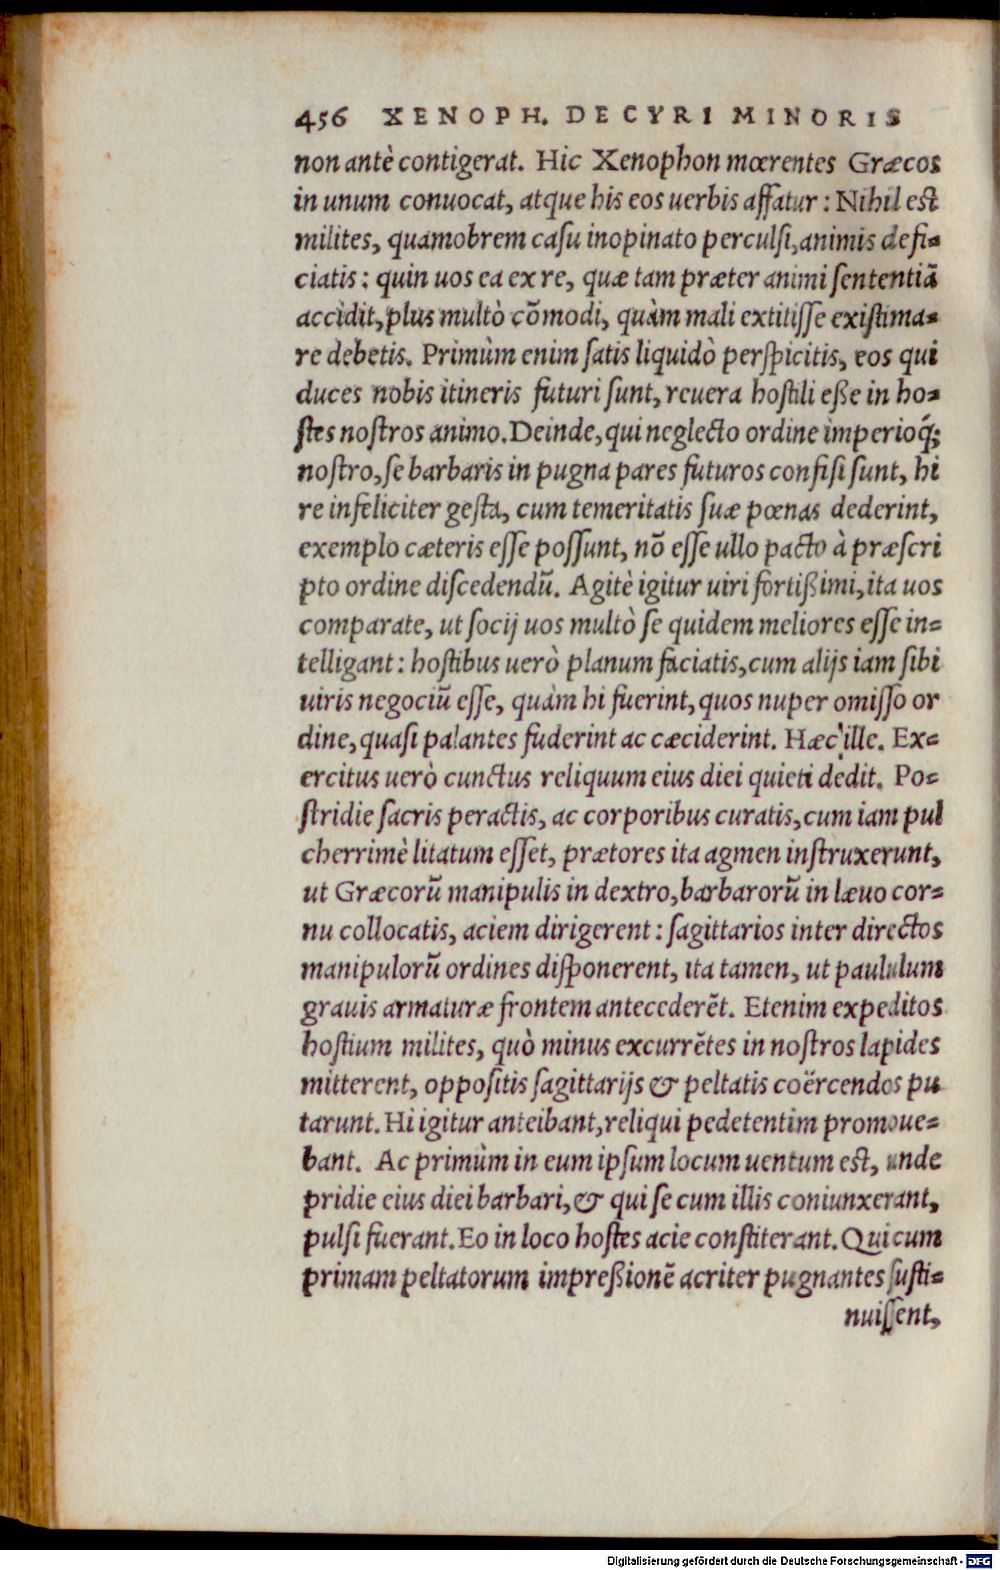 456 XENOPH. DE CYRI MINORIS
non antè contigerat. Hic Xenophon mœrentes Græcos
in unum conuocat, atque his eos uerbis affatur: Nihil est
milites, quamobrem casu inopinato perculsi, animis defi-
ciatis: quin uos ea ex re, quæ tam præter animi sententiã
accidit, plus multò cõmodi, quàm mali extitisse existima-
re debetis. Primùm enim satis liquidò perspicitis, eos qui
duces nobis itineris futuri sunt, reuera hostili eße in ho-
stes nostros animo. Deinde, qui neglecto ordine imperioq́;
nostro, se barbaris in pugna pares futuros confisi sunt, hi
re infeliciter gesta, cum temeritatis suæ pœnas dederint,
exemplo cæteris esse possunt, nõ esse ullo pacto à præscri
pto ordine discedendũ. Agitè igitur uiri fortißimi, ita uos
comparate, ut socij uos multò se quidem meliores esse in-
telligant: hostibus uerò planum faciatis, cum alijs iam sibi
uiris negociũ esse, quàm hi fuerint, quos nuper omisso or
dine, quasi palantes fuderint ac cæciderint. Hæc ille. Ex-
ercitus uerò cunctus reliquum eius diei quieti dedit. Po-
stridie sacris peractis, ac corporibus curatis, cum iam pul
cherrimè litatum esset, prætores ita agmen instruxerunt,
ut Græcorũ manipulis in dextro, barbarorũ in læuo cor-
nu collocatis, aciem dirigerent: sagittarios inter directos
manipulorũ ordines disponerent, ita tamen, ut paululum
grauis armaturæ frontem antecederẽt. Etenim expeditos
hostium milites, quò minus excurrẽtes in nostros lapides
mitterent, oppositis sagittarijs & peltatis coërcendos pu
tarunt. Hi igitur anteibant, reliqui pedetentim promoue-
bant. Ac primùm in eum ipsum locum uentum est, unde
pridie eius diei barbari, & qui se cum illis coniunxerant,
pulsi fuerant. Eo in loco hostes acie constiterant. Qui cum
primam peltatorum impreßionẽ acriter pugnantes susti-
nuissent,
Digitalisierung gefördert durch die Deutsche Forschungsgemeinschaft - DFG